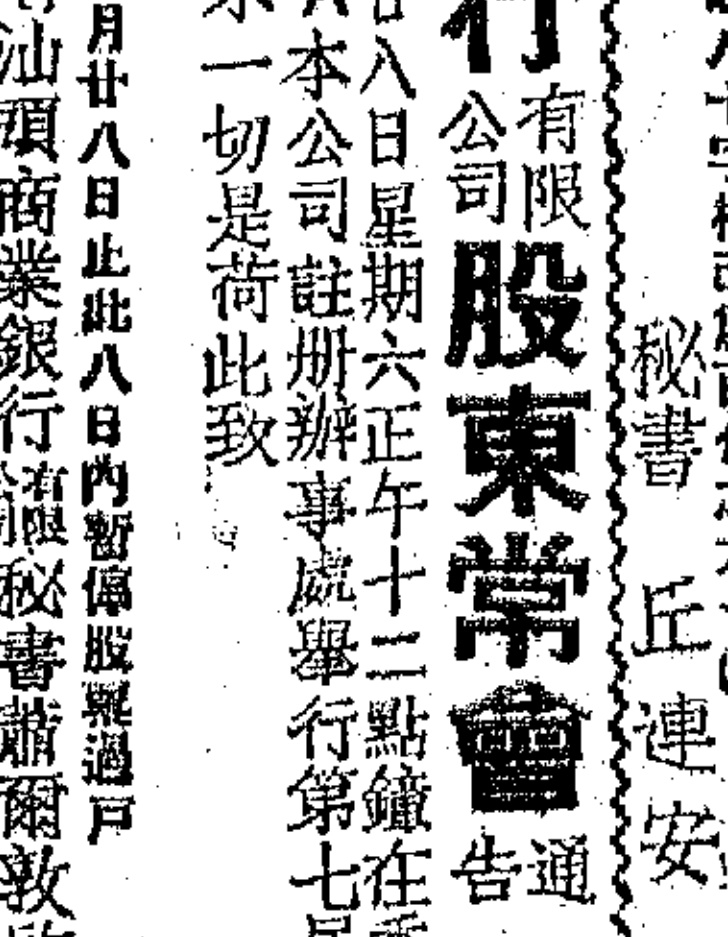 秘書 丘連安
行有限公司股東常會通告
八日星期六正午十二點鐘在
本公司註册辦事處舉行第七
一切是荷此致
月廿八日止此八日內暫停股票過戶
汕頭商業銀行有限公司秘書蕭爾敦